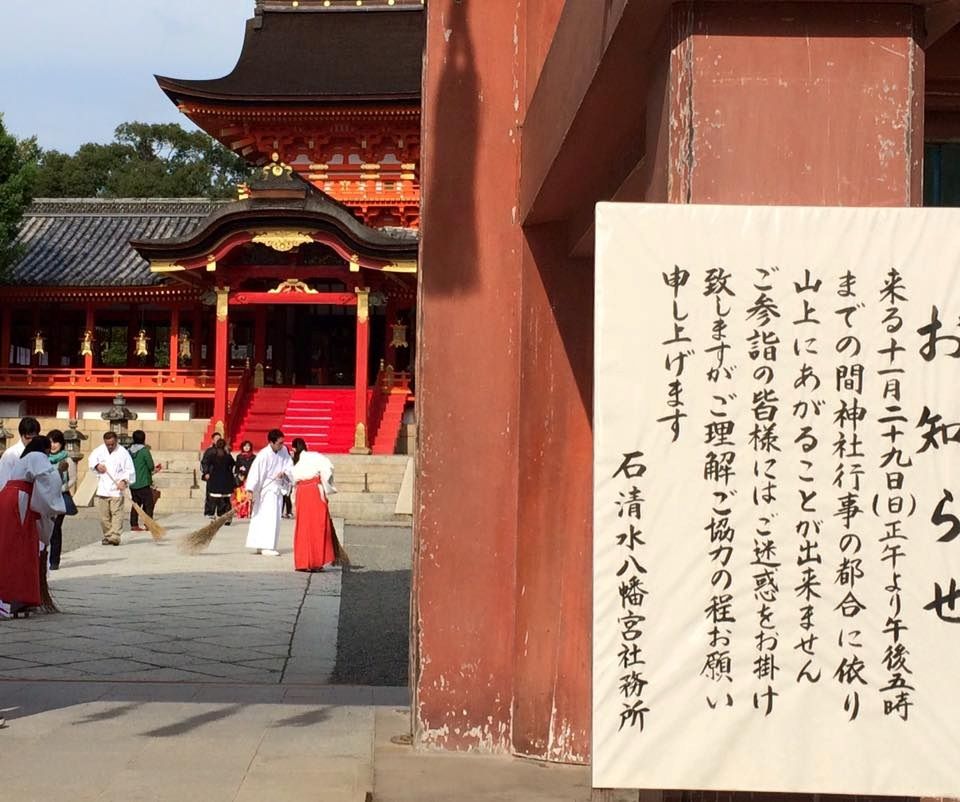 お知らせ
来る十一月二十九日(日)正午より午後五時
までの間神社行事の都合に依り
山上にあがることが出来ません
ご参詣の皆様にはご迷惑をお掛け
致しますがご理解ご協力の程お願い
申し上げます
石清水八幡宮社務所